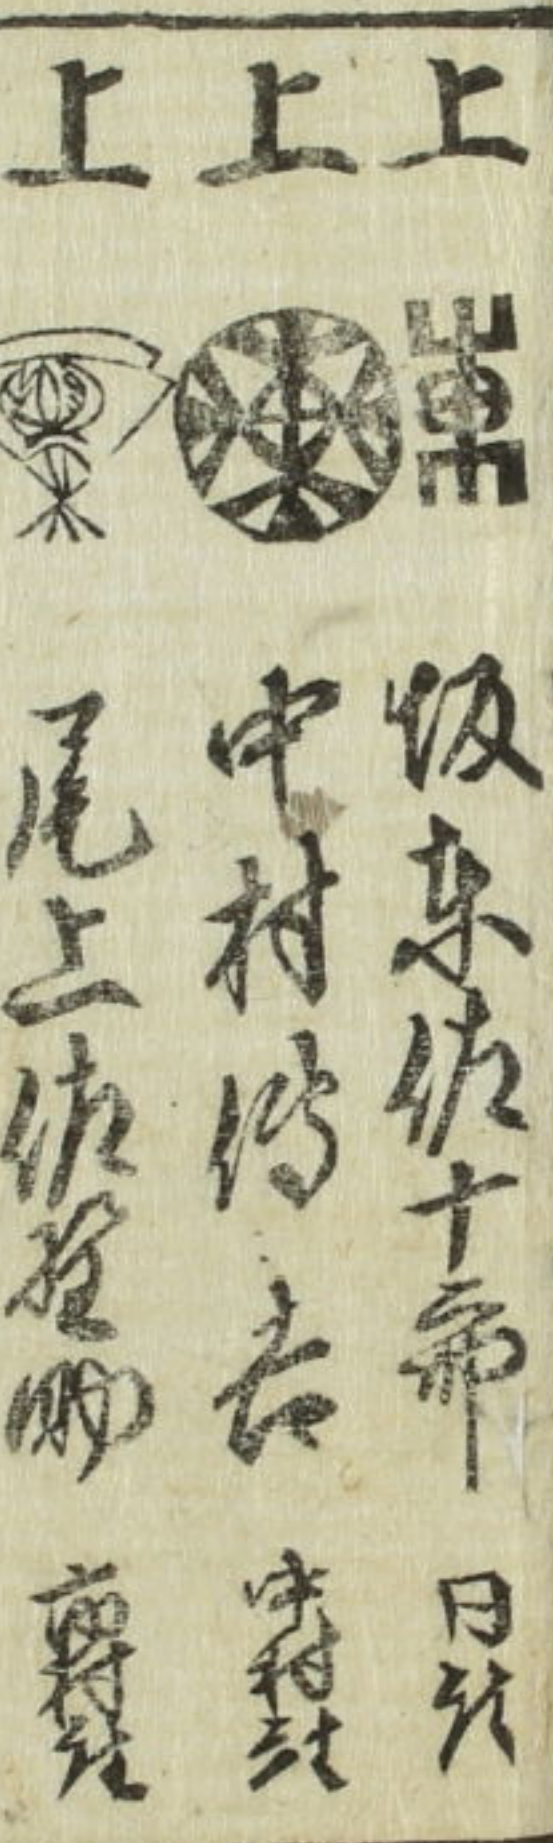 上 坂東佐十郎 同座
上 中村傳吉 中村座
上 尾上佐野助 市村座